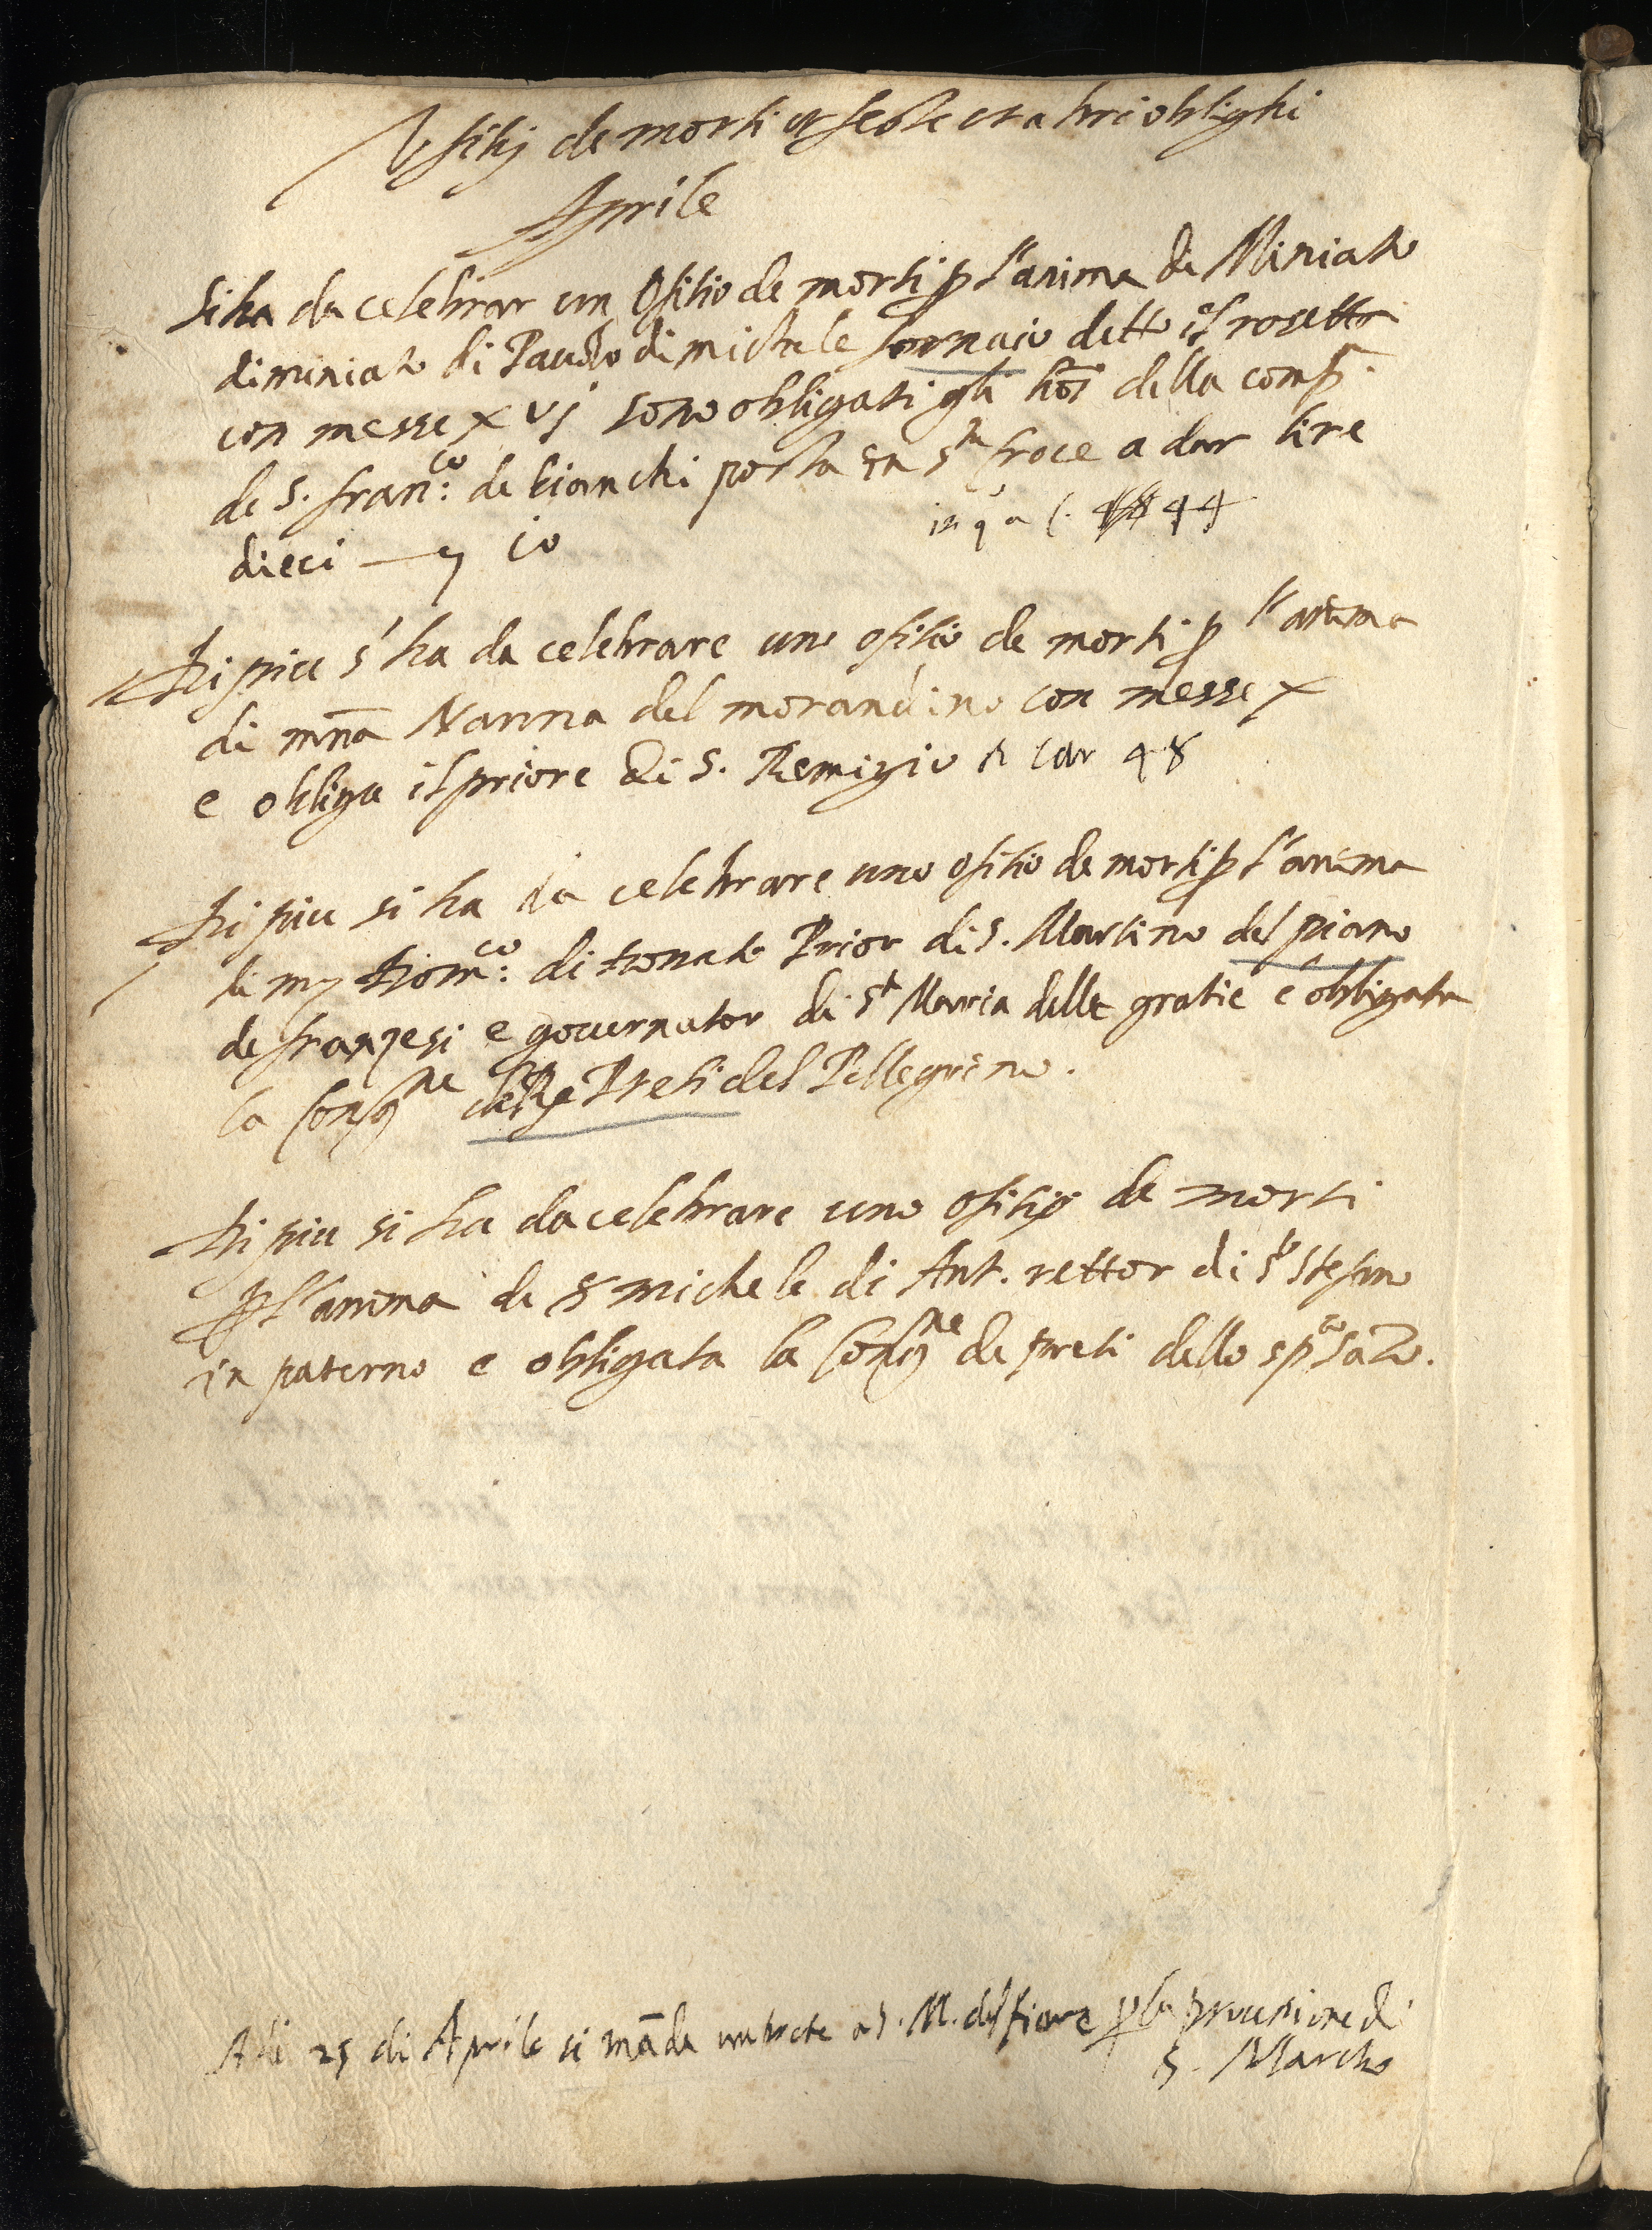 Ofitij de morti et feste et altri oblighi
Aprile
Si ha da celebrar un Ofitio de morti p l'anima di Miniato
di miniato di Pauolo di michele fornaio detto il rosetto
con messe x vj sono obligati gli hoi della comp.
de S. fran.co de bianchi posta in s.ta Croce a dar lire
dieci — 10
in q.o a c. 44
Di piu s'ha da celebrare uno ofitio de morti p l'anima
di mna Nanna del morandino con messe x
e obligo il priore di S. Remigio a car 48
Di piu si ha da celebrare uno ofitio de morti p l'anima
di m Dom.co di Donato Prior di S. Martino del piano
de franzesi e gouernator di S.ta Maria delle gratie e obligata
la Cong.ne de Preti del Pellegrino.
Di piu si ha da celebrare uno ofitio de morti
p l'anima de s michele di Ant. rettor di s.to Stefano
in paterno e obligata la Cong.ne de preti dello sp.to santo.
A di 25 di Aprile si mãda un prete a S. M. del fiore p la processione di
S. Marcho